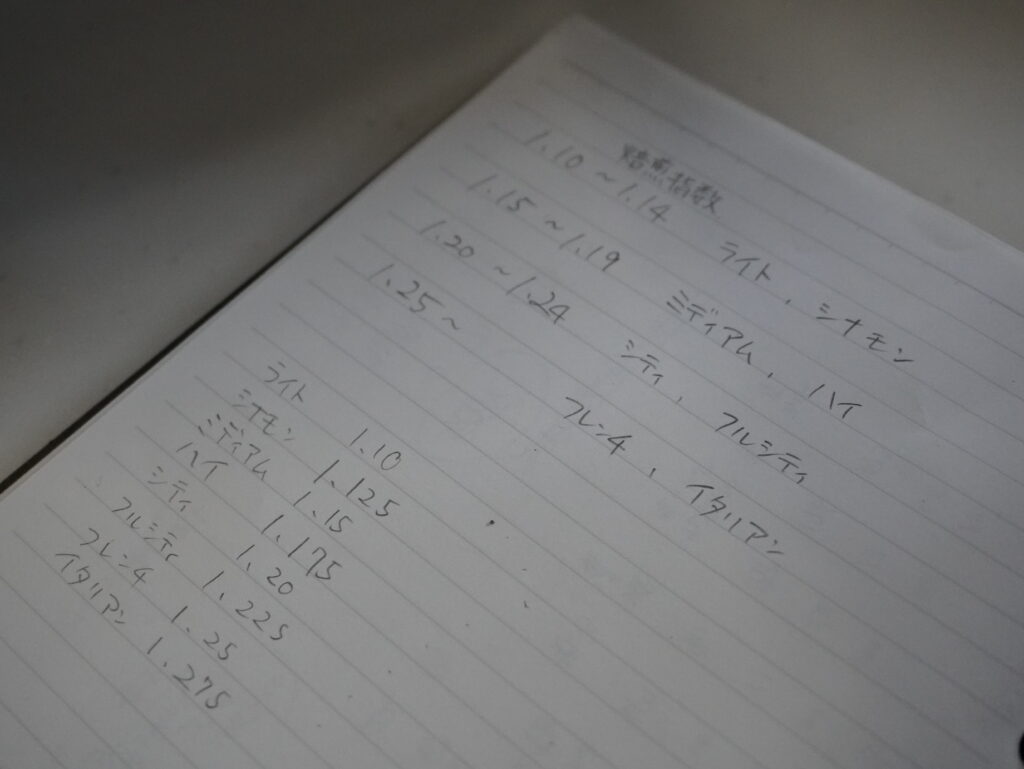 焙煎指数
1.10 ~ 1.14 ライト, シナモン
1.15 ~ 1.19 ミディアム, ハイ
1.20 ~ 1.24 シティ, フルシティ
1.25 ~ フレンチ, イタリアン
ライト 1.10
シナモン 1.125
ミディアム 1.15
ハイ 1.175
シティ 1.20
フルシティ 1.225
フレンチ 1.25
イタリアン 1.275